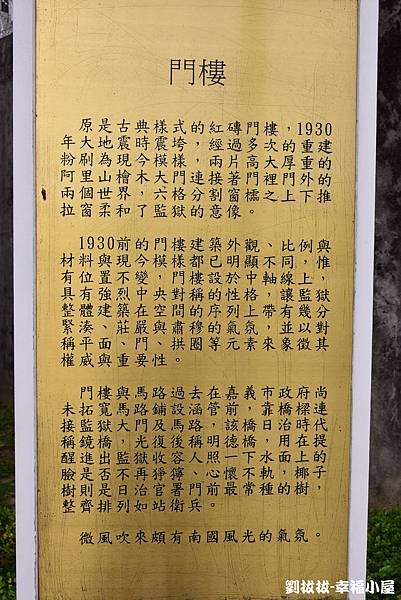 門樓
原是古典樣式紅磚門樓，1930
年大地震時震垮的，經過多次重建的
粉刷為現今模樣，兩片高大厚重的
阿里山檜木大門連接著門裡門外的
兩個世界，六格分割窗櫺之上下推
拉窗柔和了監獄的意像。
1930前的門樓建築外觀、比例與
材料與現今模樣都已明顯不同，惟
有位置不變，門樓設於中軸線上，
具有強烈中央對稱的性格，讓監獄
整體建築在空間的序列上帶有幾分
緊湊、莊嚴與肅穆的氣氛，並以對
稱平面、門、拱圈等元素來象徵其
權威與重要性。
門樓與馬路過去在嘉義市政府尚
未拓寬馬路鋪設涵管前，靠橋樑連
接監獄大門及馬路，該橋日治時代
稱鏡橋，光復後稱明德橋，用在提
醒進出監獄收容人照一下水面上的
臉是否不再猙獰、心懷不軌，椰子
樹則是日治官署門前最常種的樹，
整齊排列如站衛兵。
微風吹來頗有南國風光的氣氛。
劉拔拔-幸福小屋